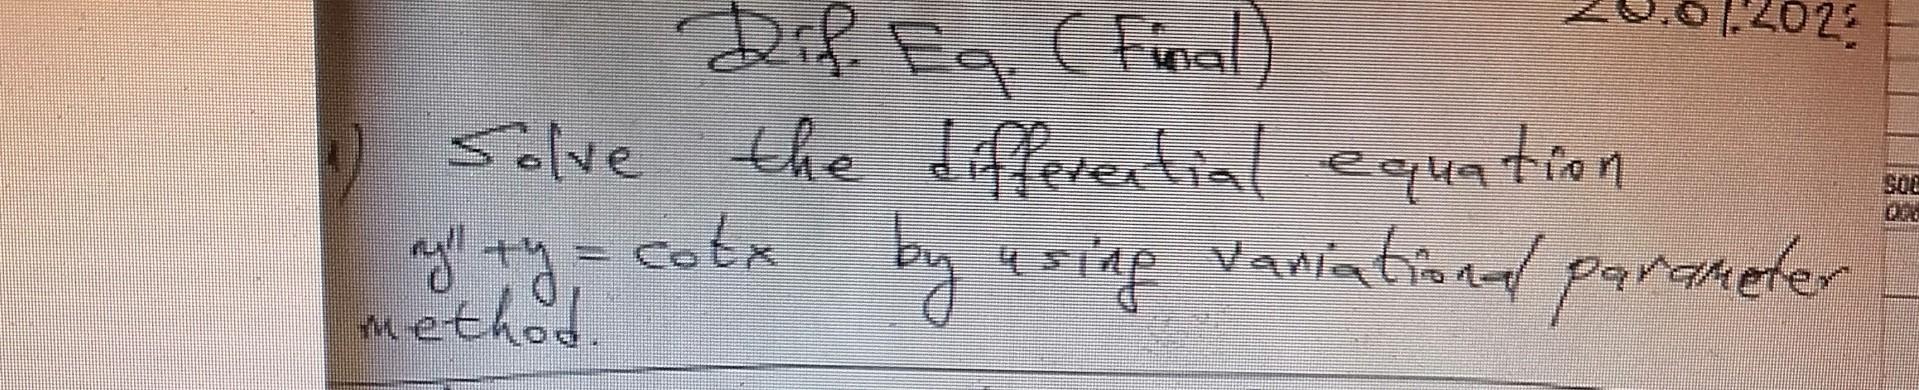 Dif. Eq. (Final)
1) Solve the differential equation
y'' + y = cotx by using variational parameter
method.